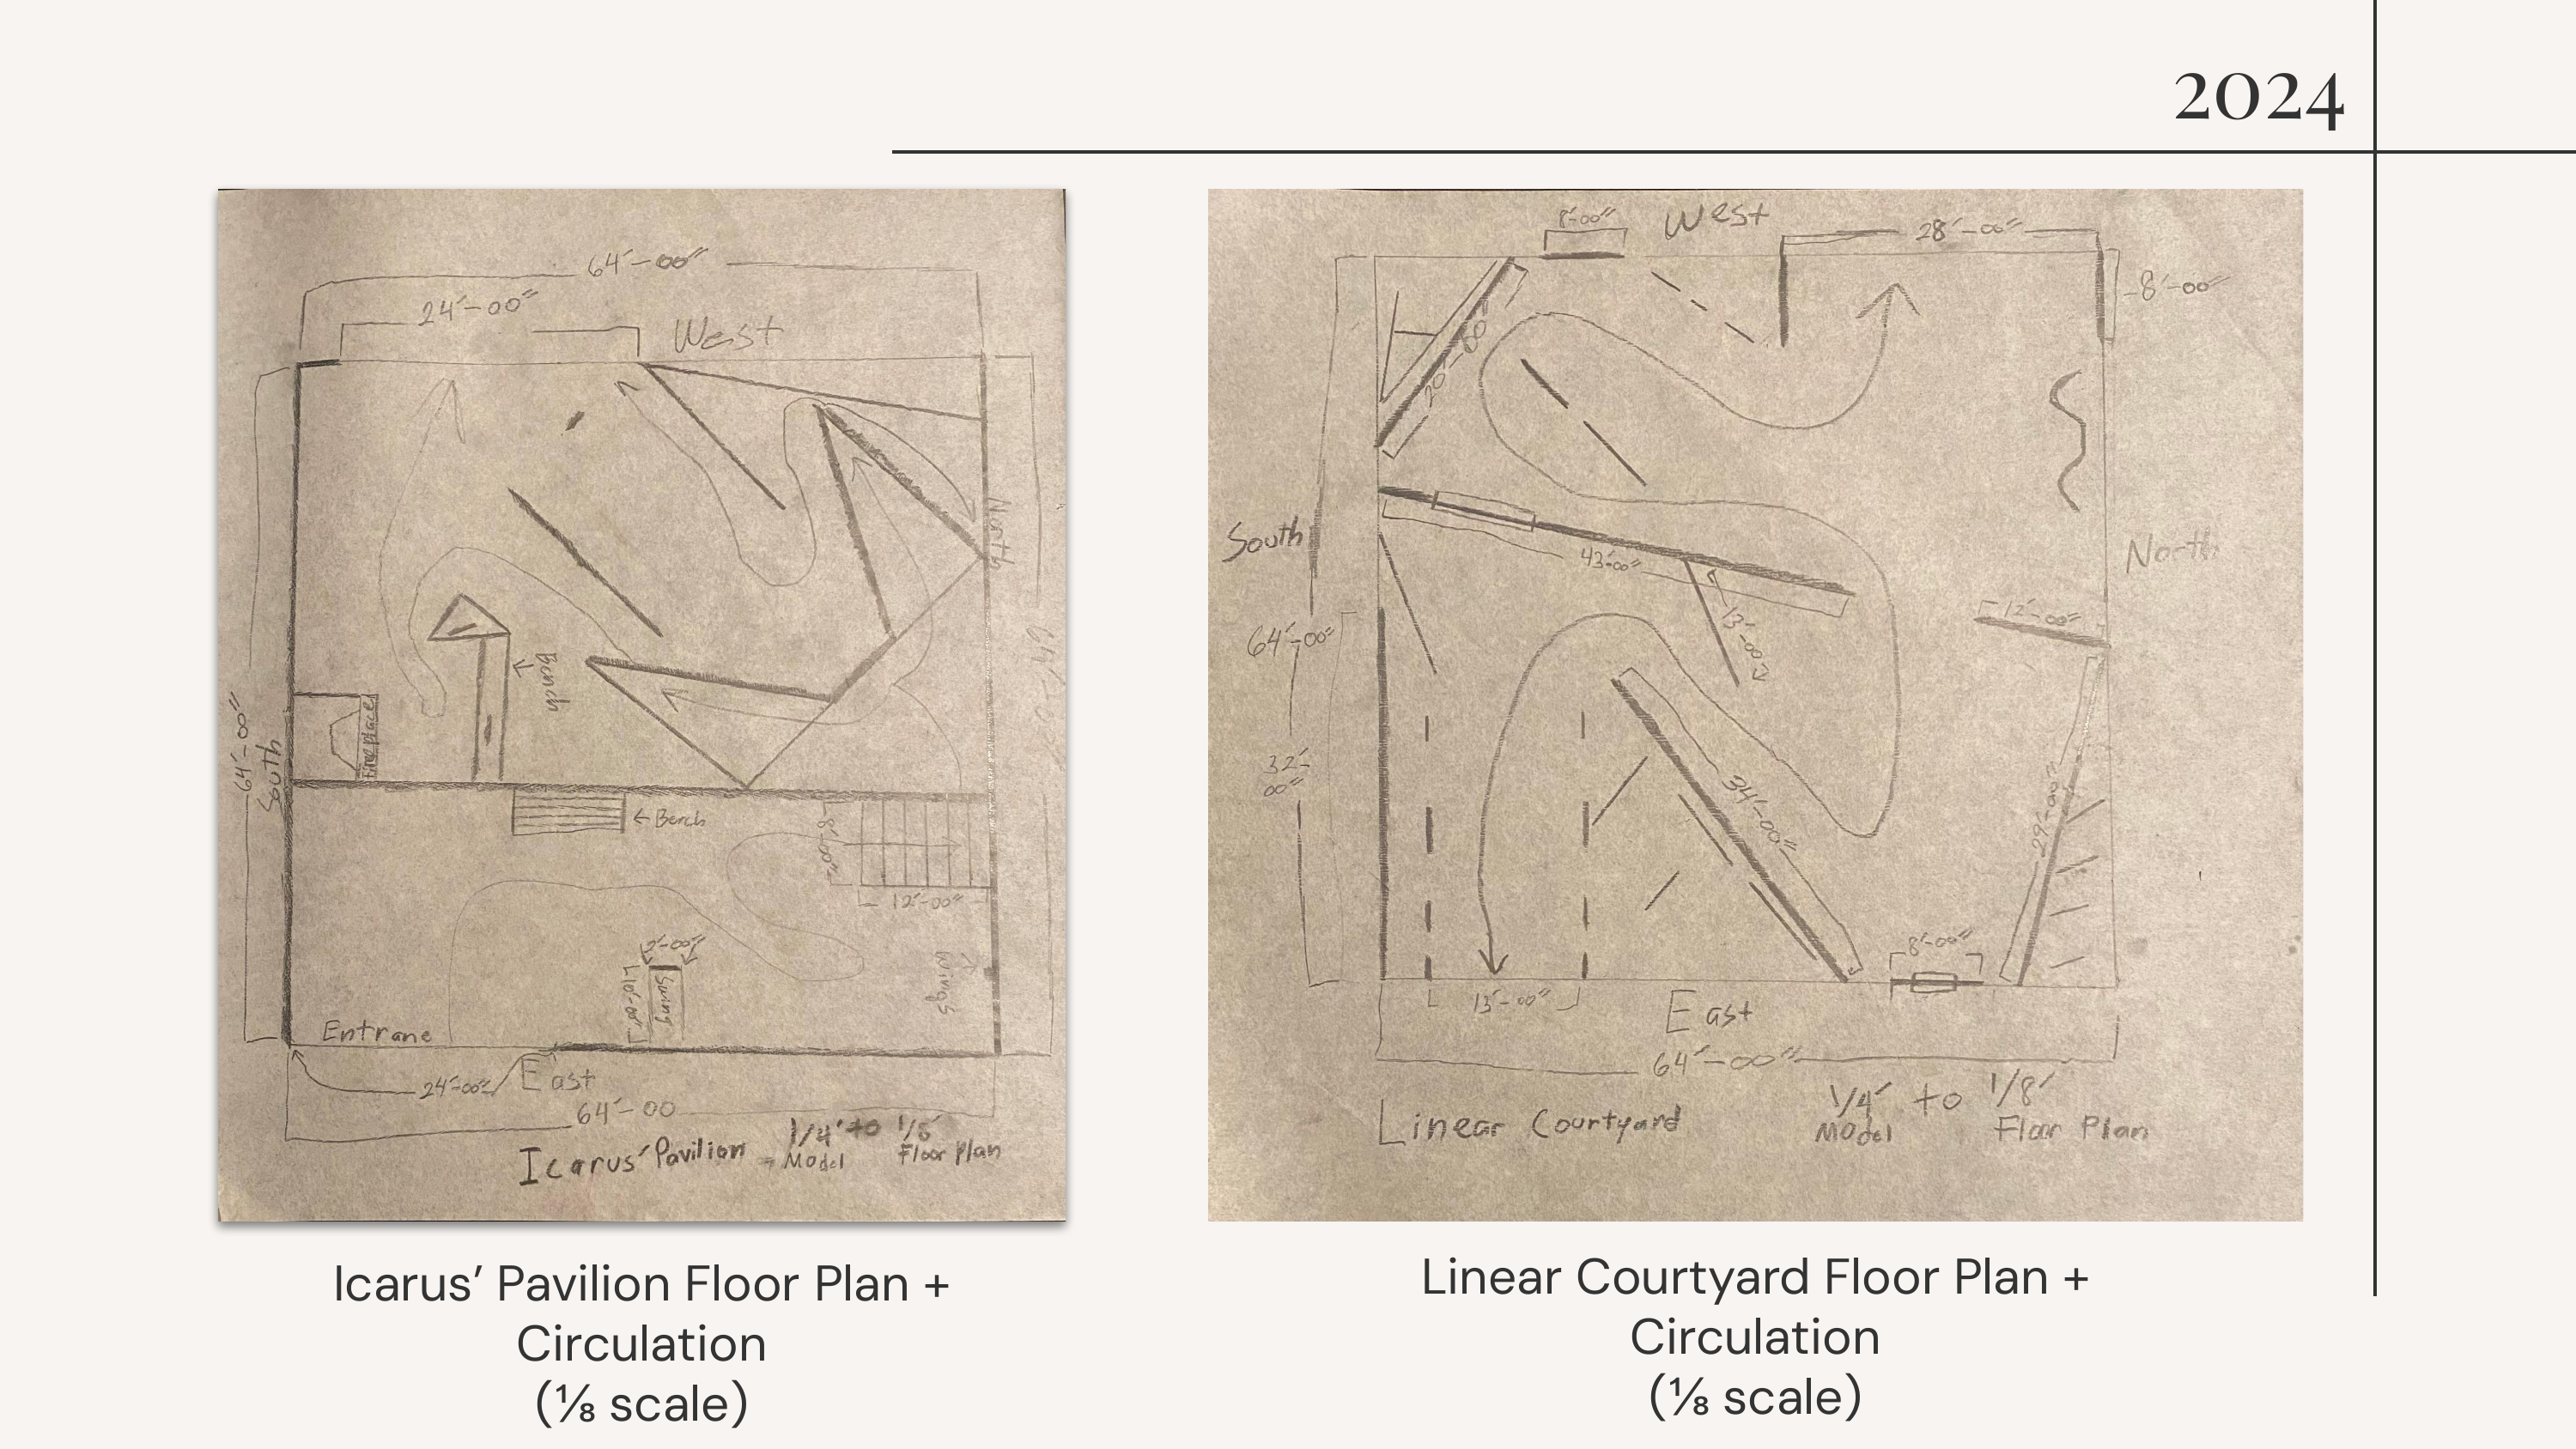 2024
64'-00"
24'-00"
West
North
Bench
Fireplace
64'-00"
South
← Bench
8'-00"
12'-00"
2'-00"
Swing
Wings
Entrane
24'-00"
East
64'-00
Icarus' Pavilion - 1/4' to
Model
Floor plan
8'-00"
West
28'-00"
8'-00"
20'-00"
South
43'-00"
North
12'-00"
13'-00"
64'-00"
32'-
00"
34'-00"
29'-00"
8'-00"
13'-00"
East
64'-00"
Linear Courtyard
1/4' to 1/8'
Model Floor Plan
Icarus’ Pavilion Floor Plan +
Circulation
(⅛ scale)
Linear Courtyard Floor Plan +
Circulation
(⅛ scale)